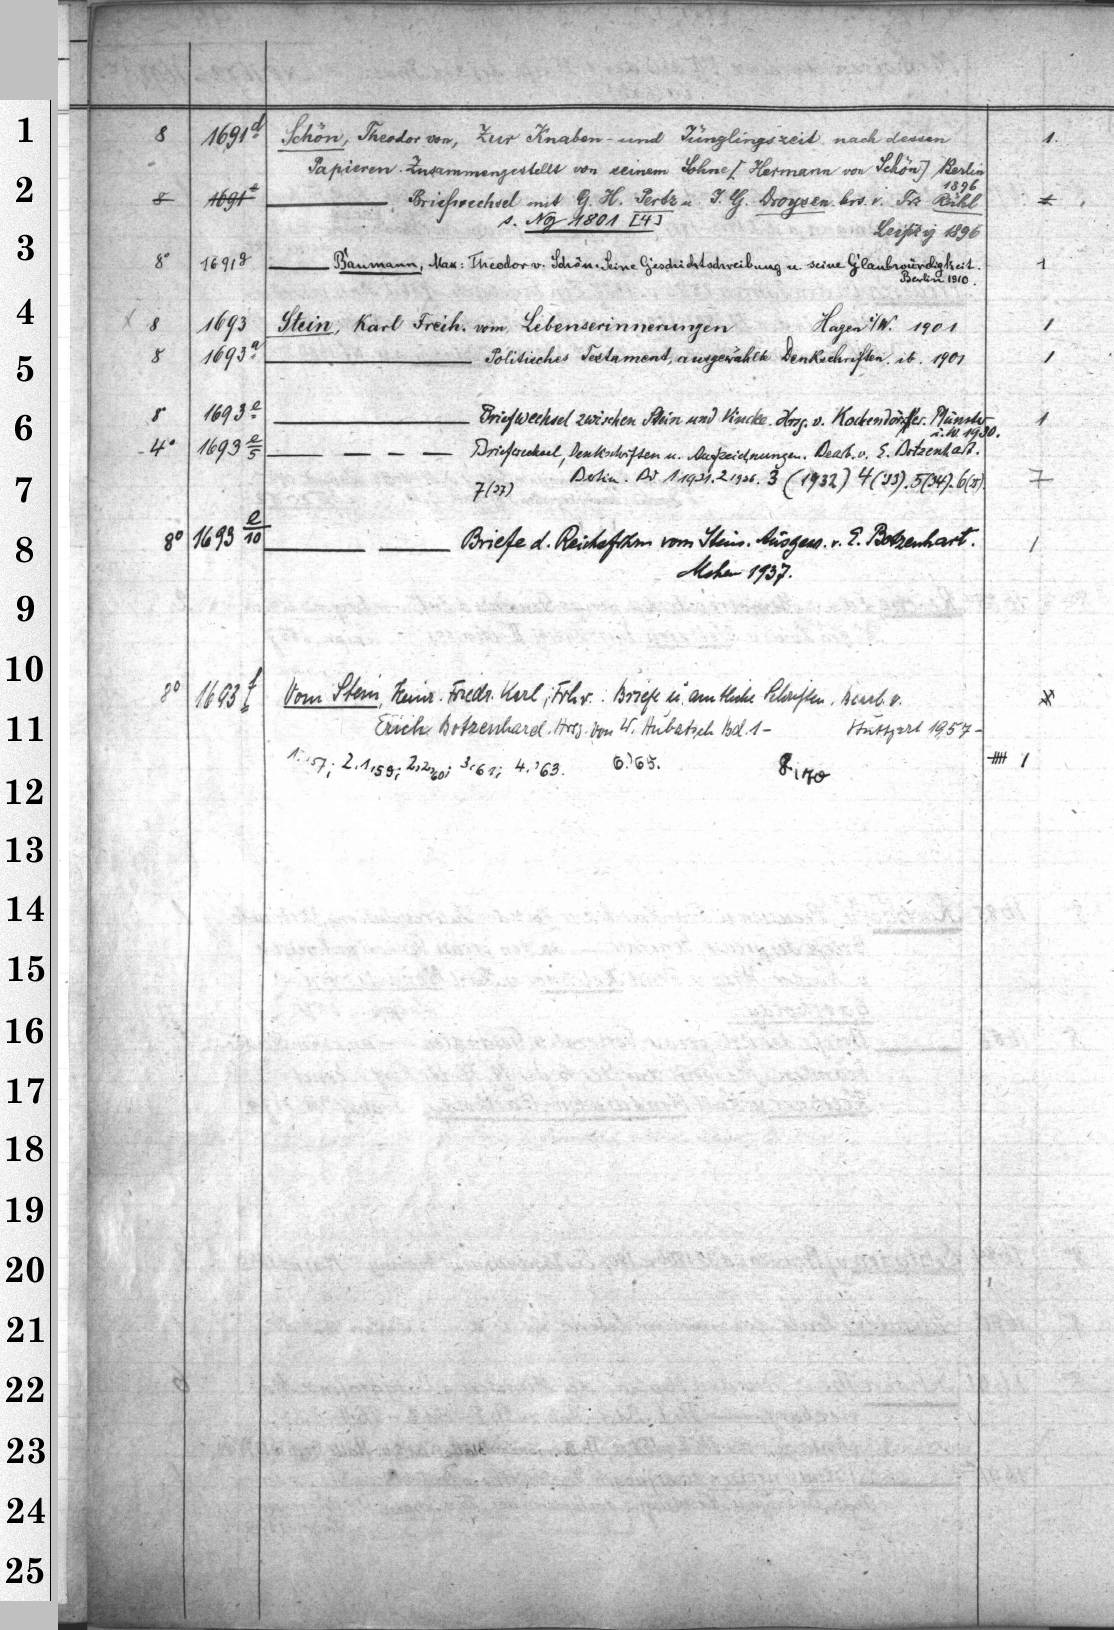 1
8 1691d Schön, Theodor von, Zur Knaben- und Jünglingszeit nach dessen 1.
Papieren. Zusammengestellt von seinem Sohne [Hermann von Schön] Berlin
1896
2
8 1691f ——— Briefwechsel mit G. H. Pertz u. J. G. Droysen. hrs. v. Frz Rühl
s. Ng 1801 [4]
Leipzig 1896
3
8° 1691g ——— Baumann, Max: Theodor v. Schön. Seine Geschichtschreibung u. seine Glaubwürdigkeit. 1
Berlin 1910.
4
8 1693 Stein, Karl Freih. vom, Lebenserinnerungen Hagen i/W. 1901 1
5
8 1693a ——— Politisches Testament, ausgewählte Denkschriften. ib. 1901 1
6
8° 1693e ——— Briefwechsel zwischen Stein und Vincke. Hrsg. v. Kochendörffer. Münster 1
i. W. 1930.
4° 1693e/5 — — — — Briefwechsel, Denkschriften u. Aufzeichnungen. Bearb. v. E. Botzenhart.
7
Berlin. Bd 1 1931. 2 1936. 3 (1932) 4 ('33). 5 (34). 6 (35). 7
7 (37)
8
8° 1693e/10 ——— Briefe d. Reichsfrhrn vom Stein. Ausgew. v. E. Botzenhart. 1
Mchen 1937.
9
10
8° 1693f Vom Stein, Heinr. Friedr. Karl, Frh. v.: Briefe u. amtliche Schriften. Bearb. v.
11
Erich Botzenhard. Hrsg. von W. Hubatsch Bd. 1 – Stuttgart 1957 –
1. '57; 2.1, '59; 2,2, '60; 3. '61; 4. '63. 6. '65. 8, 1970 1
12
13
14
15
16
17
18
19
20
21
22
23
24
25